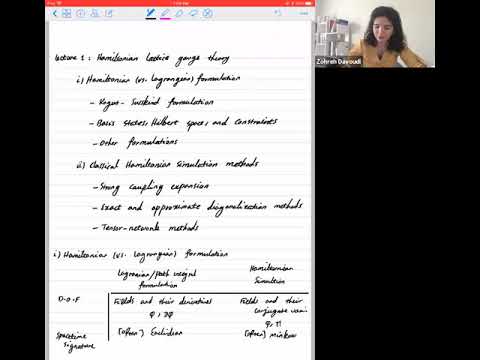 Zohreh Davoudi
Lecture 1: Hamiltonian lattice gauge theory
i) Hamiltonian (vs. Lagrangian) formulation
- Kogut-Susskind formulation
- Basis states, Hilbert space, and constraints
- Other formulations
ii) Classical Hamiltonian simulation methods
- Strong coupling expansion
- Exact and approximate diagonalization methods
- Tensor-network methods
i) Hamiltonian (vs. Lagrangian) formulation
Lagrangian/Path integral formulation
Hamiltonian Simulation
D.O.F
Fields and their derivatives
φ, ∂φ
Fields and their
conjugate
φ, π
Spacetime
Signature
(often) Euclidean
(often)